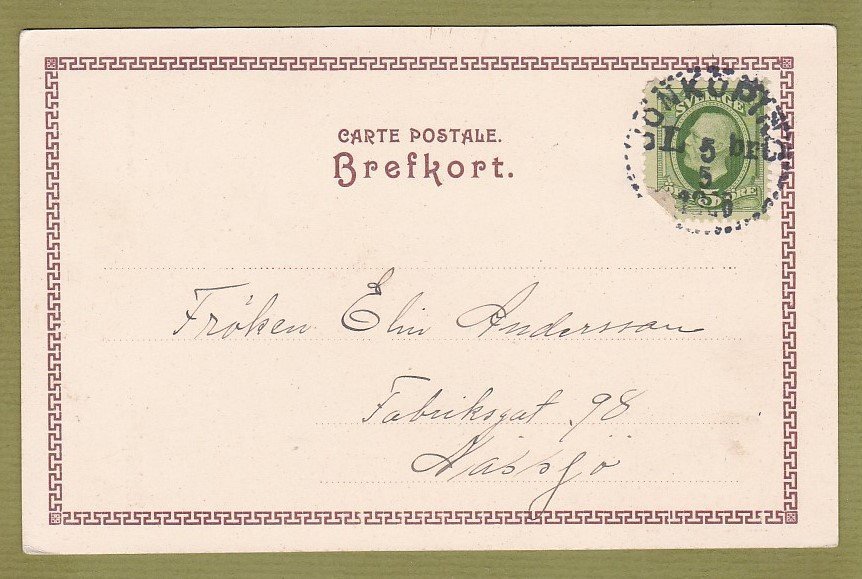 CARTE POSTALE.
Brefkort.
JÖNKÖPING
SVERIGE
5 5
5
ÖRE
Fröken Elin Andersson
Fabriksgat. 98
Nässjö